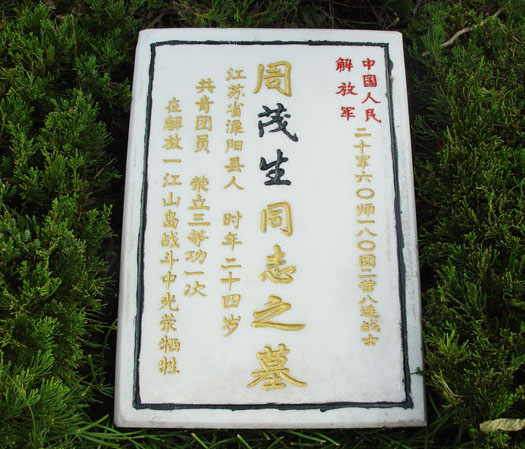 中国人民
解放军
二十军六〇师一八〇团二营八连战士
周茂生同志之墓
江苏省溧阳县人 时年二十四岁
共青团员 荣立三等功一次
在解放一江山岛战斗中光荣牺牲